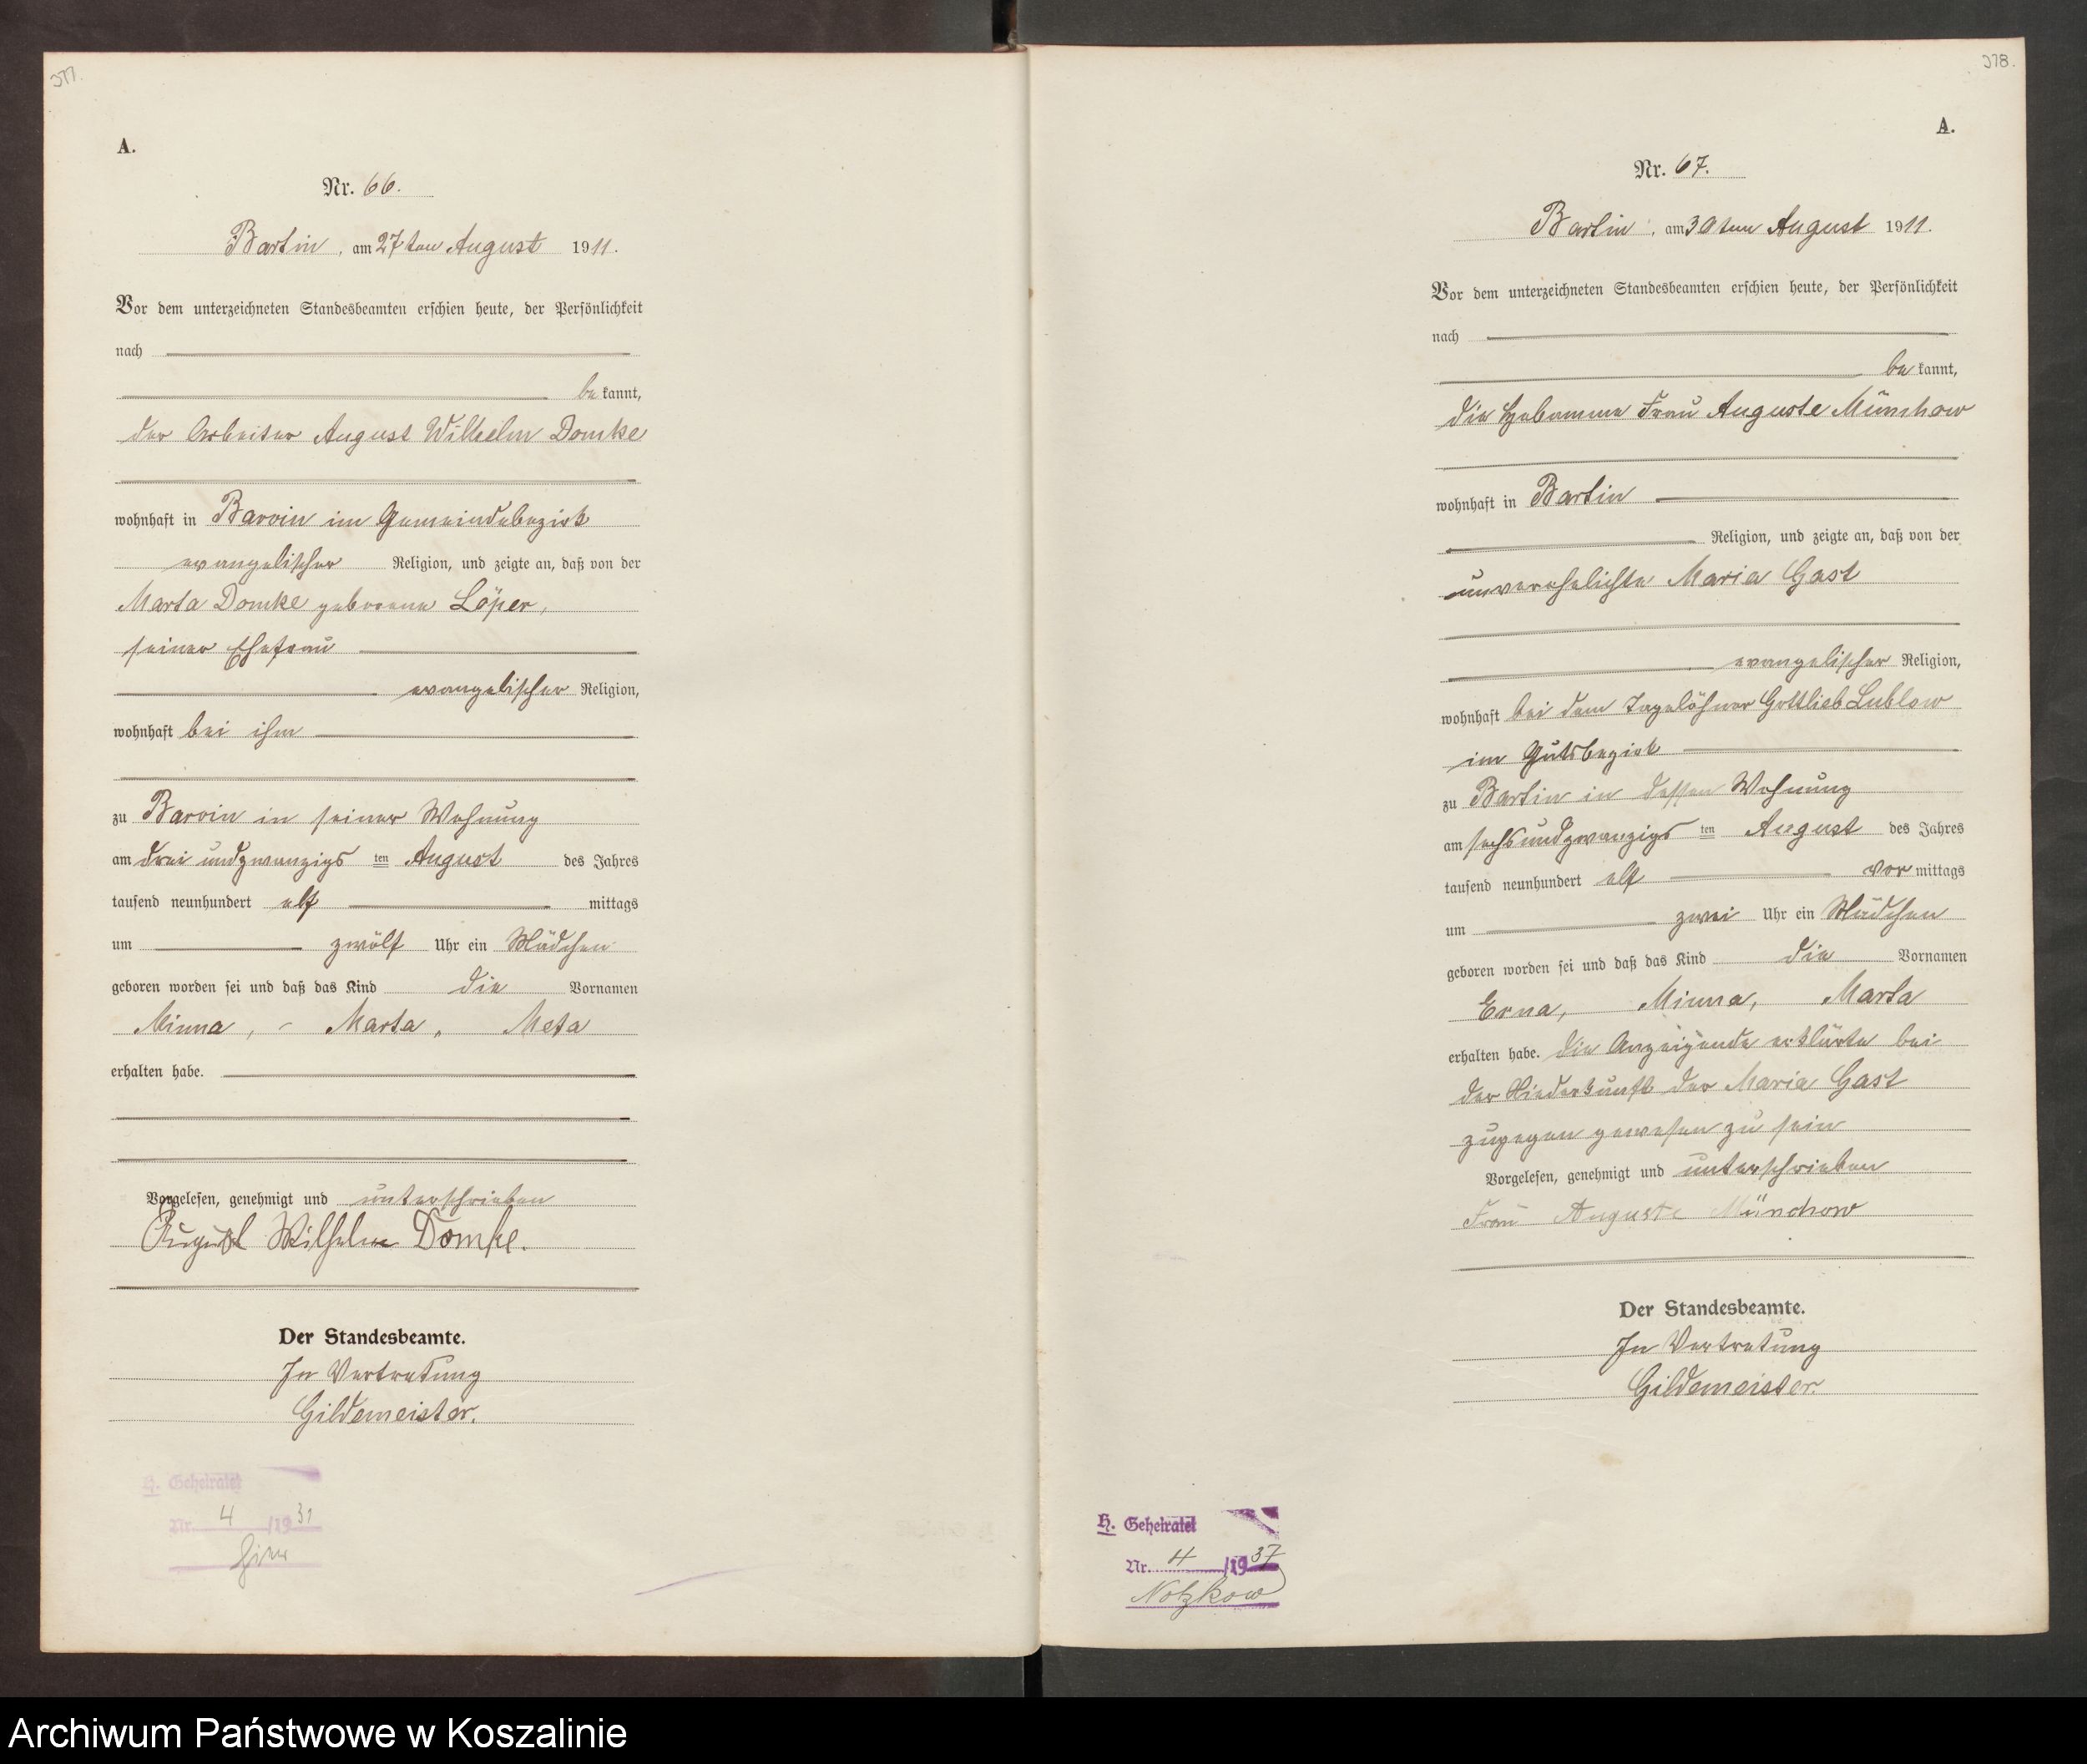 377.
A.
Nr. 66.
Bartin, am 27ten August 1911.
Vor dem unterzeichneten Standesbeamten erschien heute, der Persönlichkeit
nach
be kannt,
der Arbeiter August Wilhelm Domke
wohnhaft in Barvin im Gemeindebezirk
evangelischer Religion, und zeigte an, daß von der
Marta Domke geborene Löper,
seiner Ehefrau
evangelischer Religion,
wohnhaft bei ihm
zu Barvin in seiner Wohnung
am drei undzwanzigs ten August des Jahres
tausend neunhundert elf mittags
um zwölf Uhr ein Mädchen
geboren worden sei und daß das Kind die Vornamen
Minna, - Marta, Meta
erhalten habe.
Vorgelesen, genehmigt und unterschrieben
August Wilhelm Domke.
Der Standesbeamte.
In Vertretung
Gildemeister.
H. Geheiratet
Nr. 4 /1931
378.
A.
Nr. 67.
Bartin, am 30ten August 1911.
Vor dem unterzeichneten Standesbeamten erschien heute, der Persönlichkeit
nach
be kannt,
die Hebamme Frau Auguste Münchow
wohnhaft in Bartin
Religion, und zeigte an, daß von der
unverehelichte Maria Gast
evangelischer Religion,
wohnhaft bei dem Tagelöhner Gottlieb Lublow
im Gutsbezirk
zu Bartin in dessen Wohnung
am sechsundzwanzigs ten August des Jahres
tausend neunhundert elf vor mittags
um zwei Uhr ein Mädchen
geboren worden sei und daß das Kind die Vornamen
Erna, Minna, Marta
erhalten habe. Die Anzeigende erklärte bei
der Niederkunft der Maria Gast
zugegen gewesen zu sein
Vorgelesen, genehmigt und unterschrieben
Frau Auguste Münchow
Der Standesbeamte.
In Vertretung
Gildemeister.
H. Geheiratet
Nr. 4 /1937
Notzkow
Archiwum Państwowe w Koszalinie